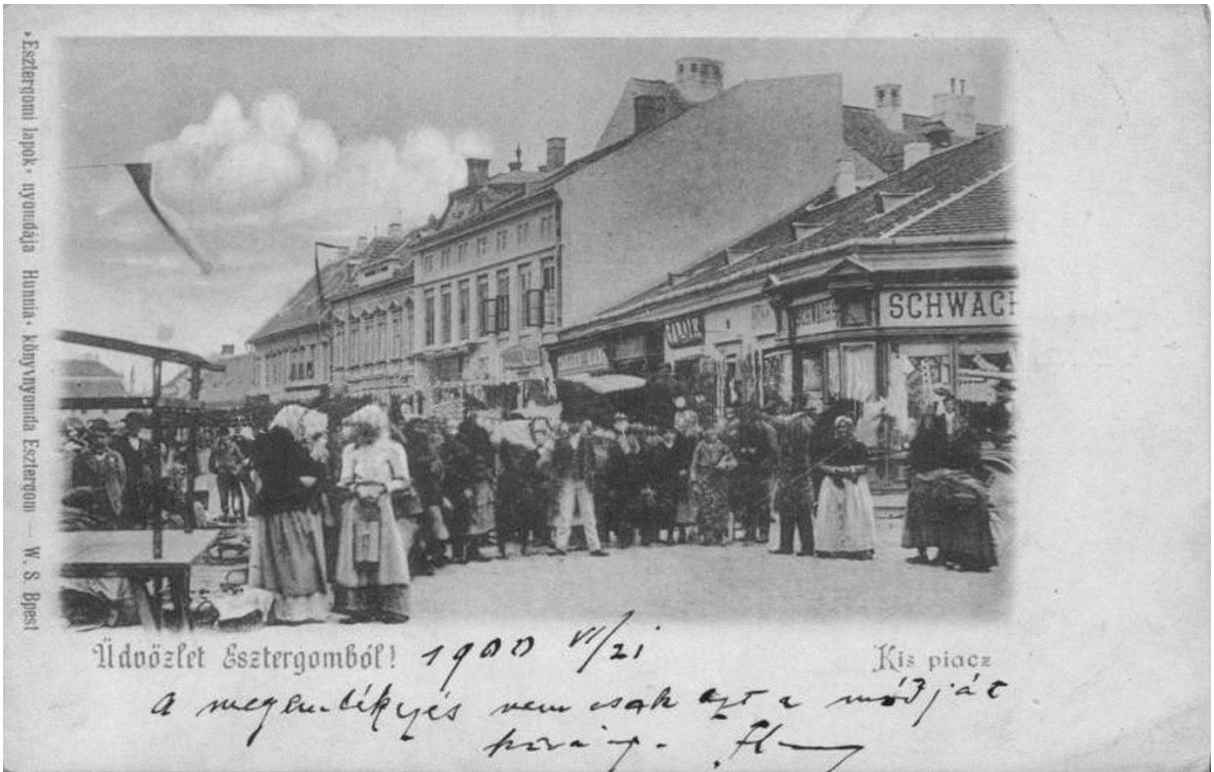 »Esztergomi lapok« nyomdája Hunnia« könyvnyomda Esztergom — W. S. Bpest
SCHWACH
SCHWACH
Üdvözlet Esztergomból!
1900 VI/21
Kis piacz
A megemlékezés nem csak ezt a módját